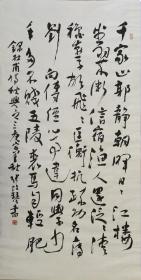 千家山郭靜朝暉日日江樓
坐翠微信宿漁人還泛泛清
秋燕子故飛飛匡衡抗疏功名薄
劉向傳經心事違同學少
年多不賤五陵裘馬自輕肥
錄杜甫詩秋興